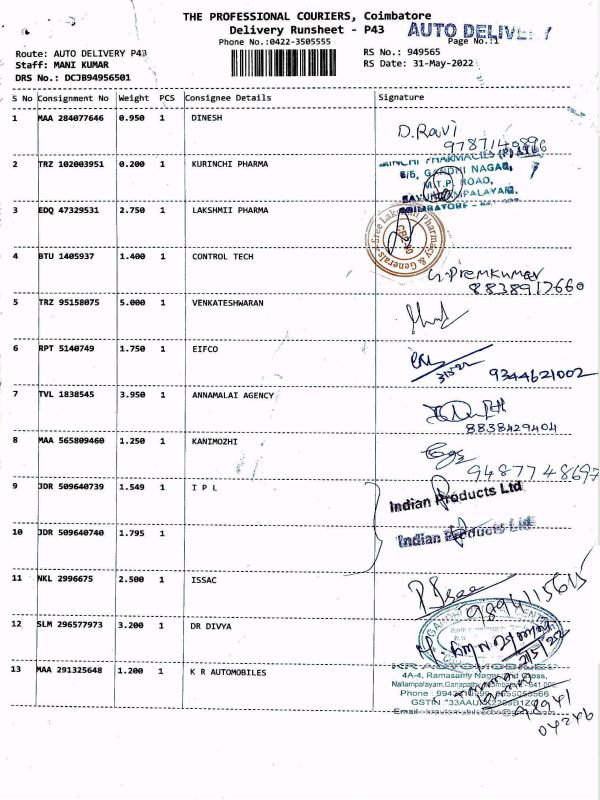 THE PROFESSIONAL COURIERS, Coimbatore
Delivery Runsheet - P43
AUTO DELIVERY
Phone No.:0422-3505555
Page No.:1
Route: AUTO DELIVERY P43
RS No.: 949565
Staff: MANI KUMAR
RS Date: 31-May-2022
DRS No.: DCJB94956501
S No Consignment No Weight PCS Consignee Details Signature
1 MAA 284077646 0.950 1 DINESH
D.Ravi
2 TRZ 102003951 0.200 1 KURINCHI PHARMA
PHARMACIES (P)
6/5, GANDHI NAGAR,
M.T.P. ROAD,
COIMBATORE
3 EDQ 47329531 2.750 1 LAKSHMII PHARMA
Sree Lakshmi Pharmacy & Generals
4 BTU 1405937 1.400 1 CONTROL TECH
G. Premkumar
8838917660
5 TRZ 95158075 5.000 1 VENKATESHWARAN
6 RPT 5140749 1.750 1 EIFCO
9344621002
7 TVL 1838545 3.950 1 ANNAMALAI AGENCY
8838429404
8 MAA 565809460 1.250 1 KANIMOZHI
9487748697
9 JDR 509640739 1.549 1 I P L
Indian Products Ltd
10 JDR 509640740 1.795 1
Indian Products Ltd
11 NKL 2996675 2.500 1 ISSAC
9894115645
12 SLM 296577973 3.200 1 DR DIVYA
13 MAA 291325648 1.200 1 K R AUTOMOBILES
KR AUTOMOBILES
4A-4, Ramasamy Nagar, 2nd Cross,
Nallampalayam, Ganapathy,
Phone :
GSTIN :
Email :
98941
04246